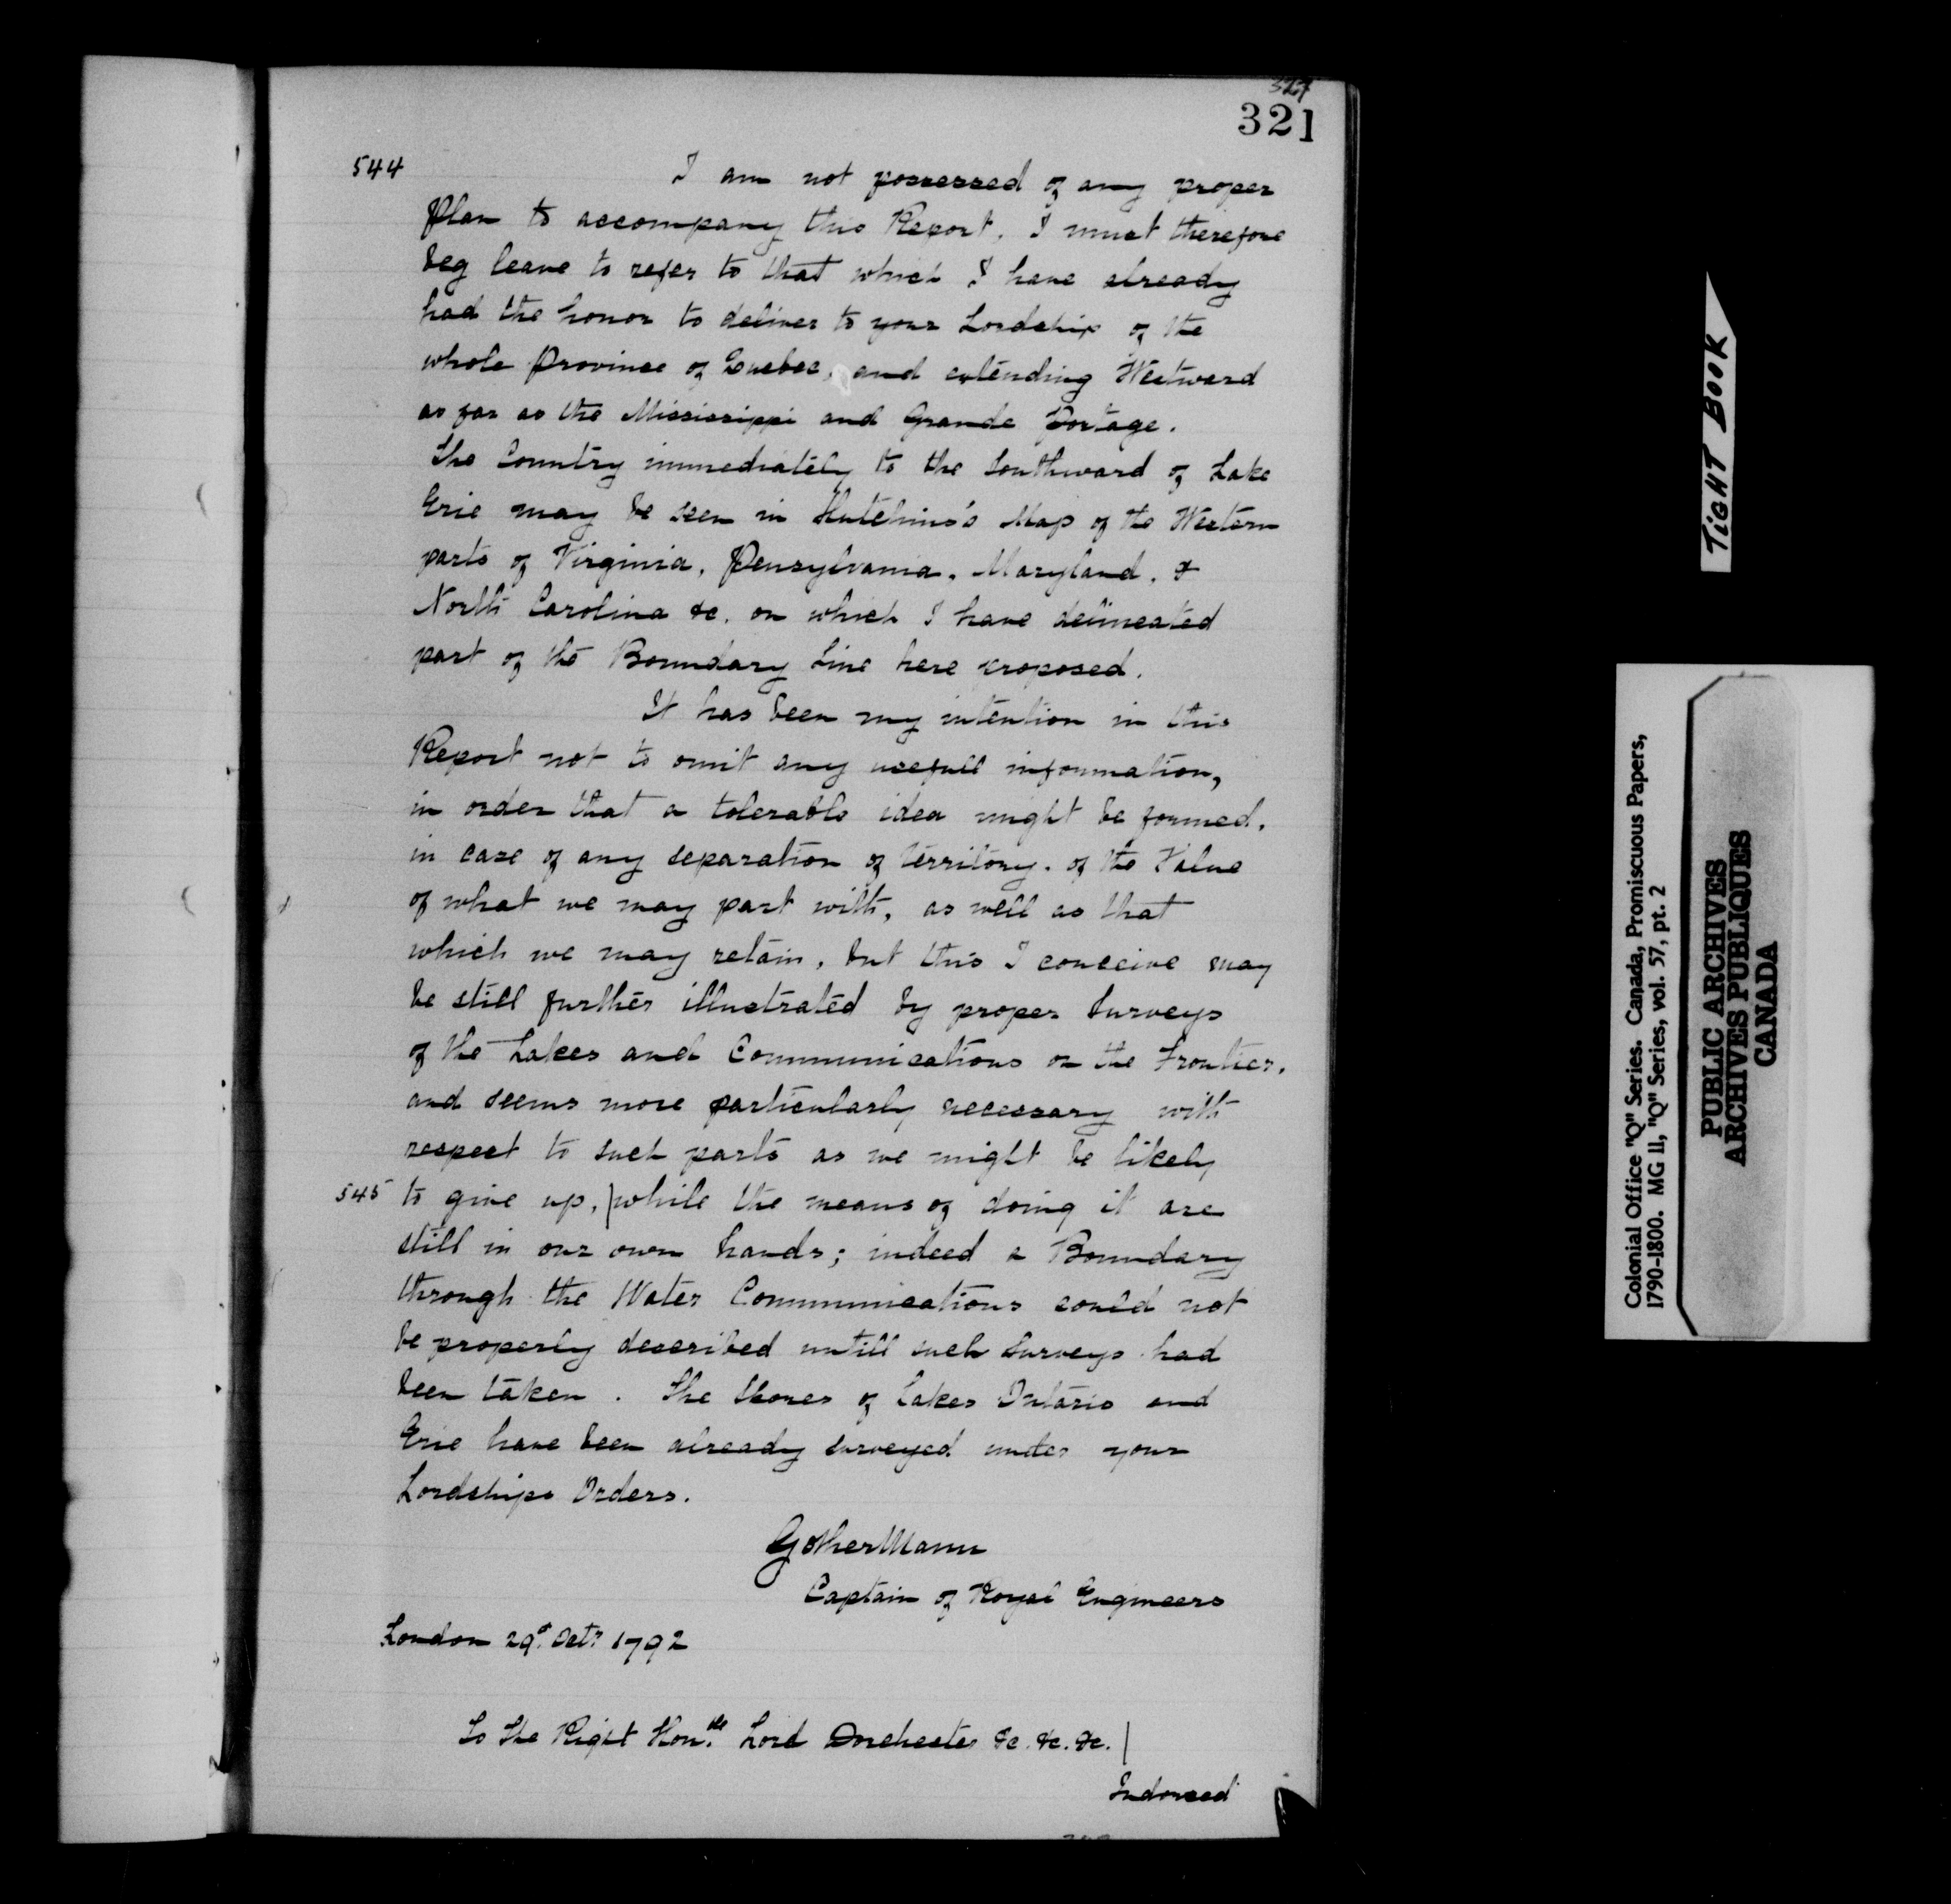 321
544
I am not possessed of any proper
Plan to accompany this Report, I must therefore
beg leave to refer to that which I have already
had the honor to deliver to your Lordship of the
whole Province of Quebec, and extending Westward
as far as the Mississippi and Grande Portage.
The Country immediately to the Southward of Lake
Erie may be seen in Hutchins's Map of the Western
parts of Virginia, Pensylvania, Maryland, &
North Carolina &c. on which I have delineated
part of the Boundary Line here proposed.
It has been my intention in this
Report not to omit any usefull information,
in order that a tolerable idea might be formed,
in case of any separation of territory. of the Value
of what we may part with, as well as that
which we may retain, but this I conceive may
be still further illustrated by proper Surveys
of the Lakes and Communications on the Frontier,
and seems more particularly necessary with
respect to such parts as we might be likely
545 to give up, | while the means of doing it are
still in our own hands; indeed a Boundary
through the Water Communications could not
be properly described untill such Surveys had
been taken. The Shores of Lakes Ontario and
Erie have been already surveyed under your
Lordships Orders.
Gother Mann
Captain of Royal Engineers
London 29th Octr 1792
To The Right Hon.ble Lord Dorchester &c. &c. &c. |
Indorsed
TIGHT BOOK
Colonial Office "Q" Series. Canada, Promiscuous Papers,
1790-1800. MG 11, "Q" Series, vol. 57, pt. 2
PUBLIC ARCHIVES
ARCHIVES PUBLIQUES
CANADA